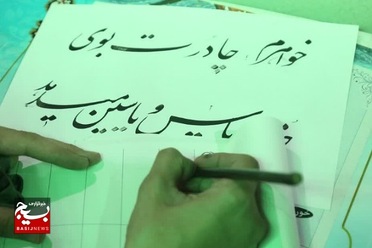 خواهرم چادرت بوی
یاس و یاسین میدهد
خبرگزاری
بسیج
BASIJNEWS